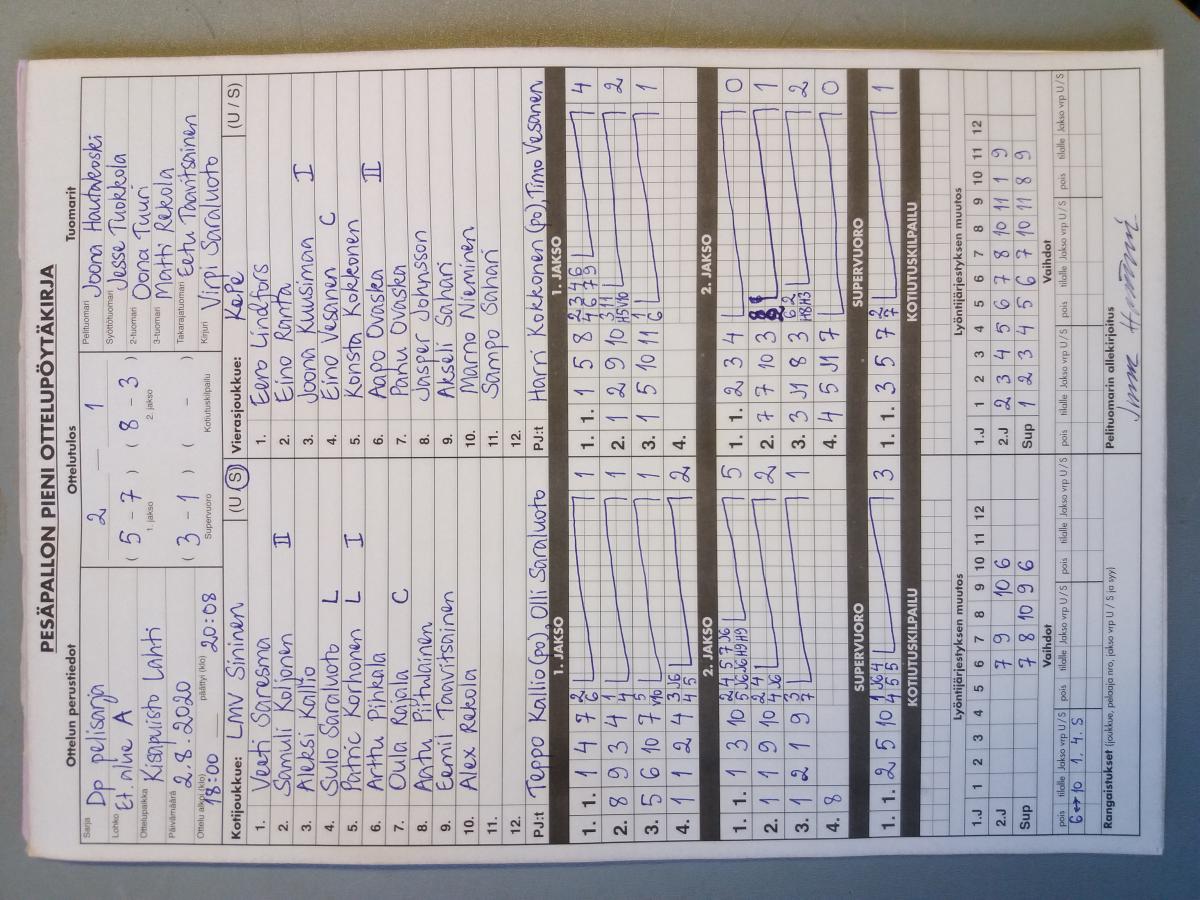 PESÄPALLON PIENI OTTELUPÖYTÄKIRJA
Ottelun perustiedot
Sarja Dp pelisarja
Lohko Et. alue A
Ottelupaikka Kisapuisto Lahti
Päivämäärä 2.8.2020
Ottelu alkoi (klo) 18:00 päättyi (klo) 20:08
Ottelutulos
2 — 1
( 5 - 7 ) ( 8 - 3 )
1. jakso 2. jakso
( 3 - 1 ) ( - )
Supervuoro Kotiutuskilpailu
Tuomarit
Pelituomari Joona Hautakoski
Syöttötuomari Jesse Tuokkola
2-tuomari Oona Tuuri
3-tuomari Matti Rekola
Takarajatuomari Eetu Taavitsainen
Kirjuri Virpi Saraluoto
Kotijoukkue: LMV Sininen (U/S)
1. Veeti Saresma
2. Samuli Koljonen II
3. Aleksi Kallio
4. Sulo Saraluoto L
5. Patric Korhonen L I
6. Arttu Pihkala
7. Oula Rajala C
8. Aatu Piitulainen
9. Eemil Taavitsainen
10. Alex Rekola
11.
12.
PJ:t Teppo Kallio (po), Olli Saraluoto
Vierasjoukkue: KePe (U / S)
1. Eero Lindfors
2. Eino Rantta
3. Joona Kuusiman I
4. Eino Vesanen C
5. Konsta Kokkonen
6. Aapo Ovaska II
7. Panu Ovaska
8. Jasper Johnsson
9. Akseli Sahari
10. Marno Nieminen
11. Sampo Sahari
12.
PJ:t Harri Kokkonen (po), Timo Vesanen
1. JAKSO
1. 1. 1 4 7 2 6 1
2. 8 9 3 4 1 4 1
3. 5 6 10 7 5 V10 1
4. 1 2 4 3 J6 4 5 2
1. JAKSO
1. 1. 1 5 8 2 3 4 6 4 6 7 9 4
2. 1 2 9 10 3 11 H5 V10 2
3. 1 5 10 11 6 1 1
4.
2. JAKSO
1. 1. 1 3 10 2 4 5 7 J6 5 J6 J6 H9 H9 5
2. 1 1 9 10 2 4 4 J6 2
3. 1 2 1 9 3 7 1
4. 8
2. JAKSO
1. 1. 2 3 4 0
2. 7 7 10 3 1
3. 3 J1 8 3 6 2 H8 H3 2
4. 4 5 J1 7 0
SUPERVUORO
1. 1. 2 5 10 1 J6 4 4 5 5 3
SUPERVUORO
1. 1. 3 5 7 2 7 1
KOTIUTUSKILPAILU
KOTIUTUSKILPAILU
Lyöntijärjestyksen muutos
1.J 1 2 3 4 5 6 7 8 9 10 11 12
2.J 7 9 10 6
Sup 7 8 10 9 6
Lyöntijärjestyksen muutos
1.J 1 2 3 4 5 6 7 8 9 10 11 12
2.J 2 3 4 5 6 7 8 10 11 1 9
Sup 1 2 3 4 5 6 7 10 11 8 9
Vaihdot
pois tilalle Jakso vrp U / S pois tilalle Jakso vrp U / S pois tilalle Jakso vrp U / S
6 ↔ 10 1. 4. S
Vaihdot
pois tilalle Jakso vrp U / S pois tilalle Jakso vrp U / S pois tilalle Jakso vrp U / S
Rangaistukset (joukkue, pelaaja nro, jakso vrp, U / S ja syy)
Pelituomarin allekirjoitus